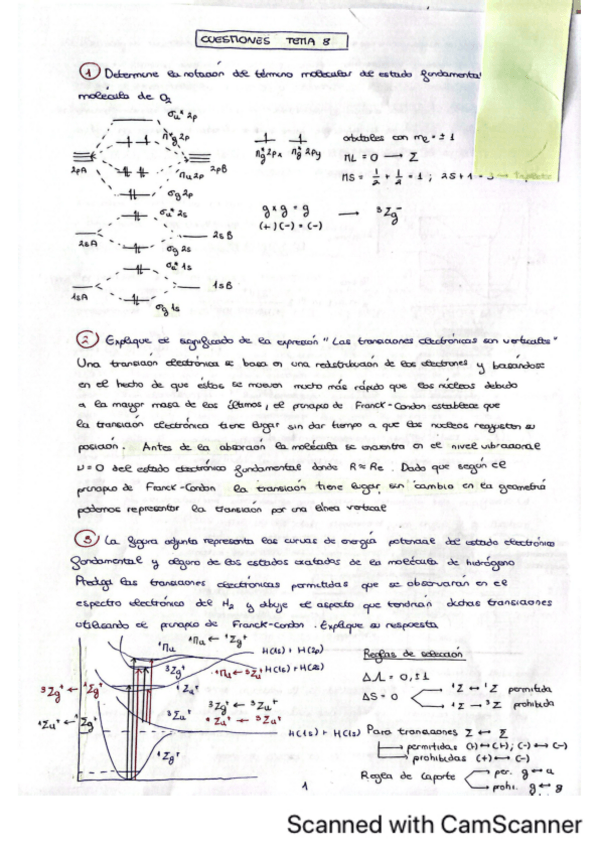 CUESTIONES TEMA 8
① Determine la notación del término molecular del estado fundamental
molécula de O2
σu* 2p
πg* 2p
2pA
πu 2p
2pB
σg 2p
σu* 2s
2sA
2sB
σg 2s
σu* 1s
1sA
1sB
σg 1s
πg* 2px πg* 2py
orbitales con ml = ±1
ML = 0 → Σ
MS = 1/2 + 1/2 = 1 ; 2S+1 = 3
g x g = g
(+)(-) = (-)
→ ³Σg⁻
② Explique el significado de la expresión "Las transiciones electrónicas son verticales"
Una transición electrónica se basa en una redistribución de los electrones y basándose
en el hecho de que éstos se mueven mucho más rápido que los núcleos debido
a la mayor masa de los últimos, el principio de Franck-Condon establece que
la transición electrónica tiene lugar sin dar tiempo a que los núcleos reajusten su
posición. Antes de la absorción la molécula se encuentra en el nivel vibracional
υ=0 del estado electrónico fundamental donde R≈Re. Dado que según el
principio de Franck-Condon la transición tiene lugar sin cambio en la geometría
podemos representar la transición por una línea vertical
③ La figura adjunta representa las curvas de energía potencial del estado electrónico
fundamental y alguno de los estados excitados de la molécula de hidrógeno
Prediga las transiciones electrónicas permitidas que se observarán en el
espectro electrónico del H2 y dibuje el aspecto que tendrán dichas transiciones
utilizando el principio de Franck-Condon. Explique su respuesta
¹Πu ¹Πu ← ¹Σg⁺
H(1s) + H(2p)
³Σg⁺
H(1s) + H(2s)
³Σg⁺ ← ¹Σg⁺
¹Σu⁺
³Σu⁺ ³Σg⁺ ← ³Σu⁺
¹Σu⁺ ← ¹Σg⁺
¹Σu⁺ ← ³Σu⁺
H(1s) + H(1s)
¹Σg⁺
Reglas de selección
ΔΛ = 0, ±1
ΔS = 0
¹Σ ↔ ¹Σ permitida
¹Σ → ³Σ prohibida
Para transiciones Σ ↔ Σ
permitidas (+)↔(+); (-)↔(-)
prohibidas (+)↔(-)
Regla de Laporte
per. g↔u
prohi. g↔g
1
Scanned with CamScanner